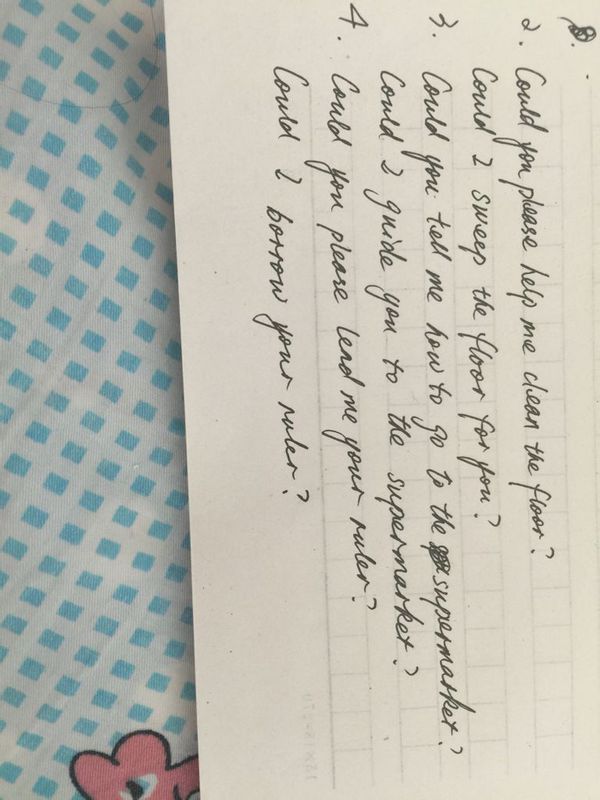 2. Could you please help me clean the floor?
Could I sweep the floor for you?
3. Could you tell me how to go to the supermarket?
Could I guide you to the supermarket?
4. Could you please lend me your ruler?
Could I borrow your ruler?